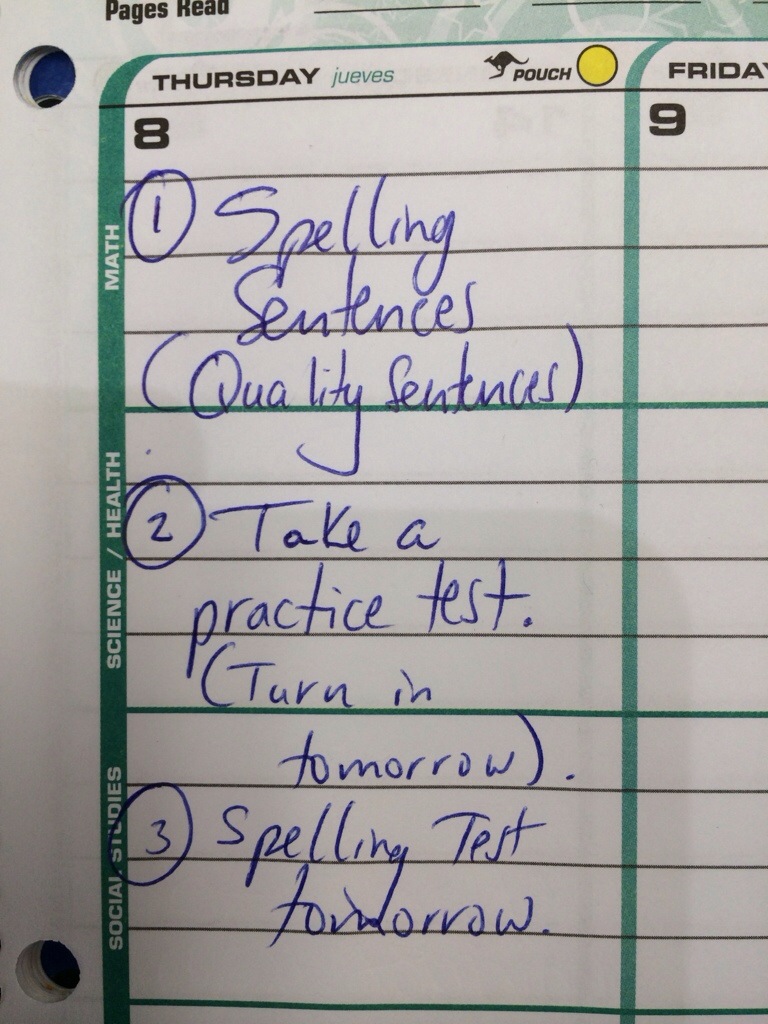 Pages Read
THURSDAY jueves POUCH
FRIDAY
8
9
MATH
① Spelling
Sentences
(Quality Sentences)
SCIENCE / HEALTH
② Take a
practice test.
(Turn in
tomorrow).
SOCIAL STUDIES
③ Spelling Test
tomorrow.